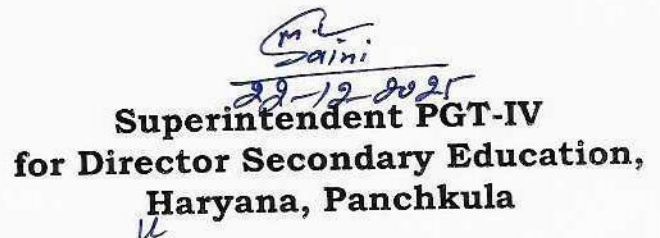 M.L
Saini
22-12-2025
Superintendent PGT-IV
for Director Secondary Education,
Haryana, Panchkula